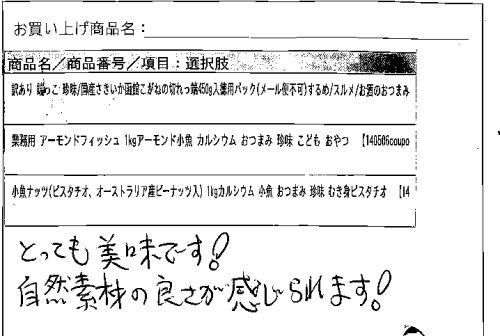 お買い上げ商品名：
商品名／商品番号／項目：選択肢
訳あり 珍味/国産さきいか函館こがねの切れっ葉450g入業務用パック(メール便不可)するめ/スルメ/お酒のおつまみ
業務用 アーモンドフィッシュ 1kgアーモンド小魚 カルシウム おつまみ 珍味 こども おやつ 【140506coupo
小魚ナッツ(ピスタチオ、オーストラリア産ピーナッツ入) 1kgカルシウム 小魚 おつまみ 珍味 むき身ピスタチオ 【14
とっても美味です!
自然素材の良さが感じられます!